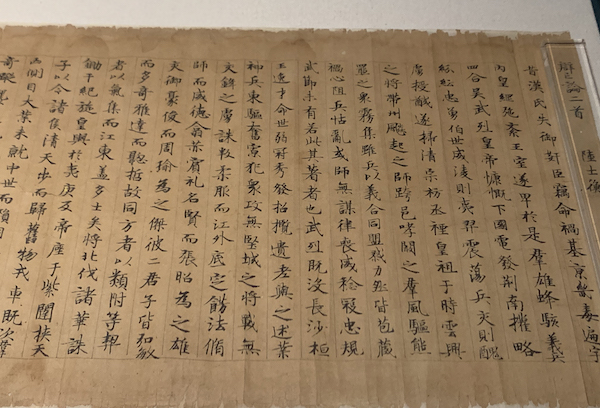 辯亡論二首 陸士衡
昔漢氏失御姧臣竊命禍基京畿毒遍宇
內皇綱弛紊王室遂卑於是羣雄蜂駭義兵
四合吳武烈皇帝慷慨下國電發荊南權略
紛紜忠勇伯世威淩則夷羿震蕩兵交則醜
虜授馘遂掃清宗枋丞禋皇祖于時雲興
之將帶州飈起之師跨邑哮闞之羣風驅熊
羆之衆霧集雖兵以義合同盟戮力然皆苞藏
禍心阻兵怙亂或師無謀律喪威稔寇忠規
武節未有若此其著者也武烈既沒長沙桓
王逸才命世弱冠秀發招攬遺老與之述業
神兵東驅奮寡犯衆攻無堅城之將戰無
交鋒之虜誅叛柔服而江外底定飭法脩
師而威德翕赫賓礼名賢而張昭為之雄
交御豪俊而周瑜為之傑彼二君子皆弘敏
而多奇雅達而聰哲故同方者以類附等契
者以氣集而江東蓋多士矣將北伐諸華誅
鋤干紀旋皇輿於夷庚反帝座于紫闥挾天
子以令諸侯清天步而歸舊物戎車既次羣
凶側目大業未就中世而殞用
奇蹤襲